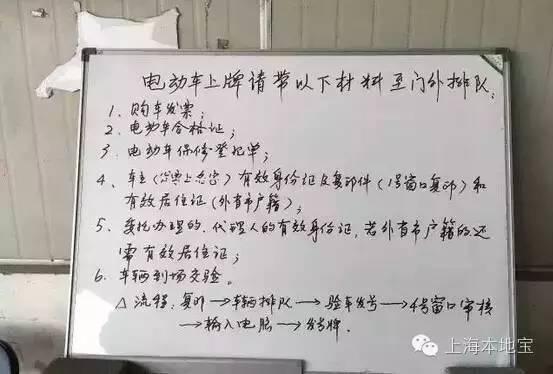 电动车上牌请带以下材料至门外排队：
1、购车发票；
2、电动车合格证；
3、电动车保修登记单；
4、车主（发票上忠名）有效身份证及复印件（1号窗口复印）和
有效居住证（外省市户籍）；
5、委托办理的、代理人的有效身份证，若外省市户籍的还
需有效居住证；
6、车辆到场交验。
△流程：复印→车辆排队→验车发号→4号窗口审核
→输入电脑→发号牌.
上海本地宝